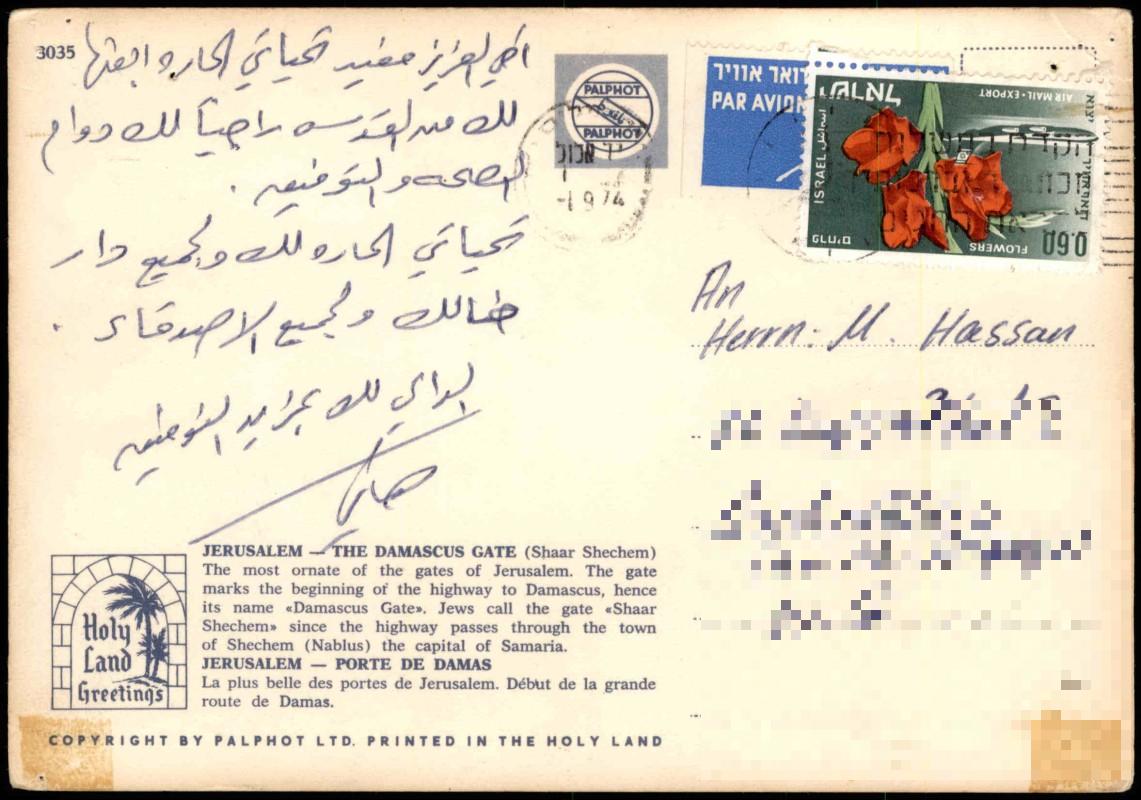 3035
أخي العزيز مفيد تحياتي الحاره ابعثها
لك من القدس راجياً لك دوام
الصحه والتوفيق .
تحياتي الحاره لك ولجميع دار
خالك ولجميع الاصدقاء .
الداعي لك بمزيد التوفيق
PALPHOT
פלפוט
PALPHOT
-1 9 74
דואר אוויר
PAR AVION
ישראל
AIR MAIL-EXPORT
ISRAEL اسرائيل
פרחים
FLOWERS
0.60
An
Herrn: M. Hassan
JERUSALEM — THE DAMASCUS GATE (Shaar Shechem)
The most ornate of the gates of Jerusalem. The gate
marks the beginning of the highway to Damascus, hence
its name «Damascus Gate». Jews call the gate «Shaar
Shechem» since the highway passes through the town
of Shechem (Nablus) the capital of Samaria.
JERUSALEM — PORTE DE DAMAS
La plus belle des portes de Jerusalem. Début de la grande
route de Damas.
Holy
Land
Greetings
COPYRIGHT BY PALPHOT LTD. PRINTED IN THE HOLY LAND